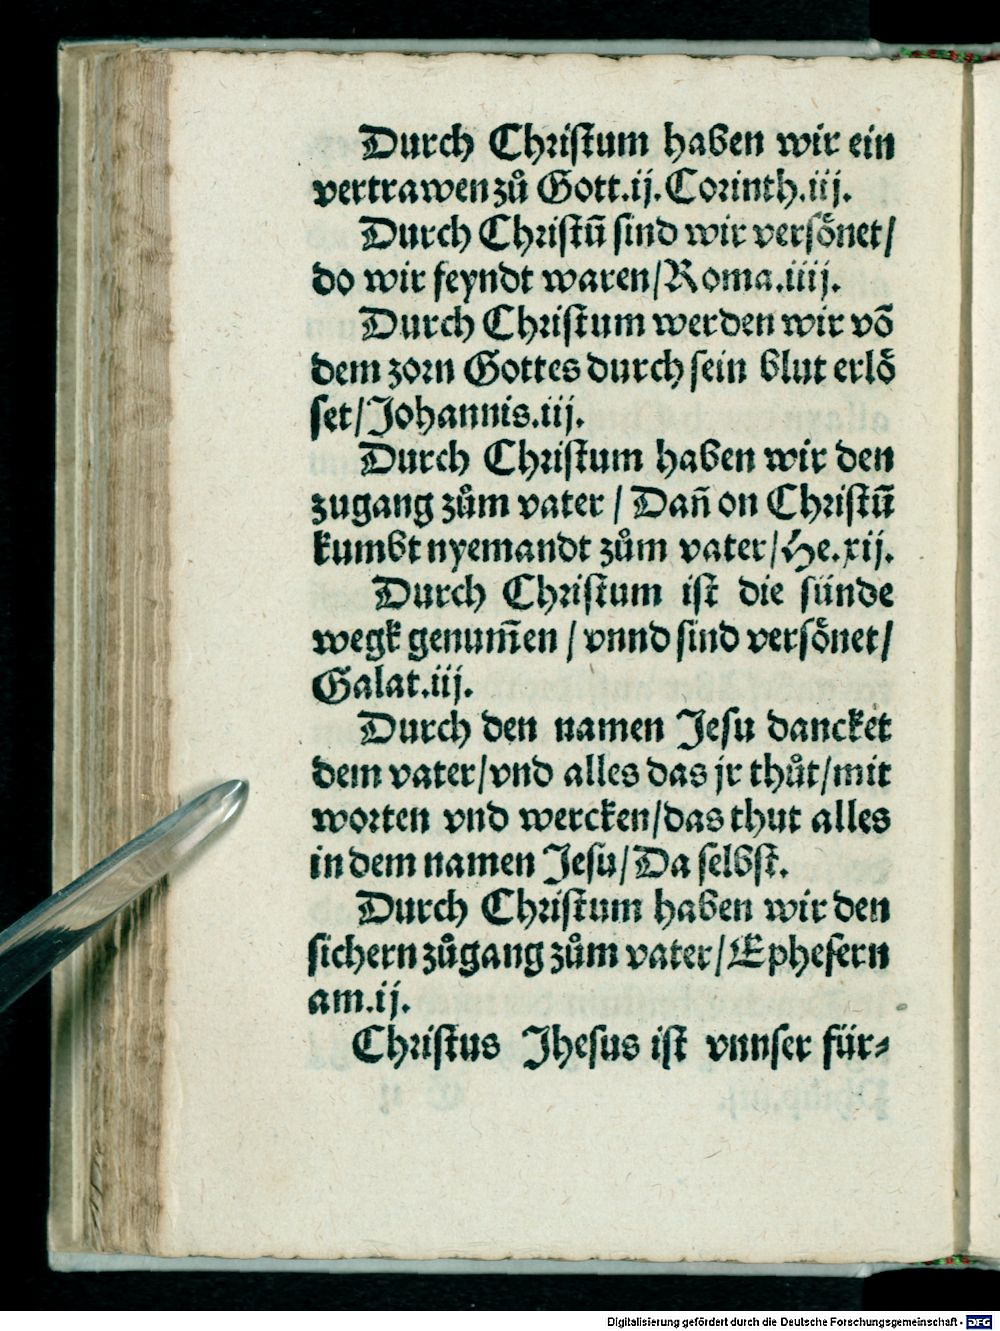 Durch Christum haben wir ein
vertrawen zů Gott.ij.Corinth.iij.
Durch Christū sind wir versönet/
do wir feyndt waren/Roma.iiij.
Durch Christum werden wir võ
dem zorn Gottes durch sein blut erlö
set/Johannis.iij.
Durch Christum haben wir den
zugang zům vater / Dañ on Christū
kumbt nyemandt zům vater/He.xij.
Durch Christum ist die sünde
wegk genum̄en / vnnd sind versönet/
Galat.iij.
Durch den namen Jesu dancket
dem vater/vnd alles das jr thůt/mit
worten vnd wercken/das thut alles
in dem namen Jesu/Da selbst.
Durch Christum haben wir den
sichern zůgang zům vater/Ephesern
am.ij.
Christus Jhesus ist vnnser für⸗
Digitalisierung gefördert durch die Deutsche Forschungsgemeinschaft - DFG